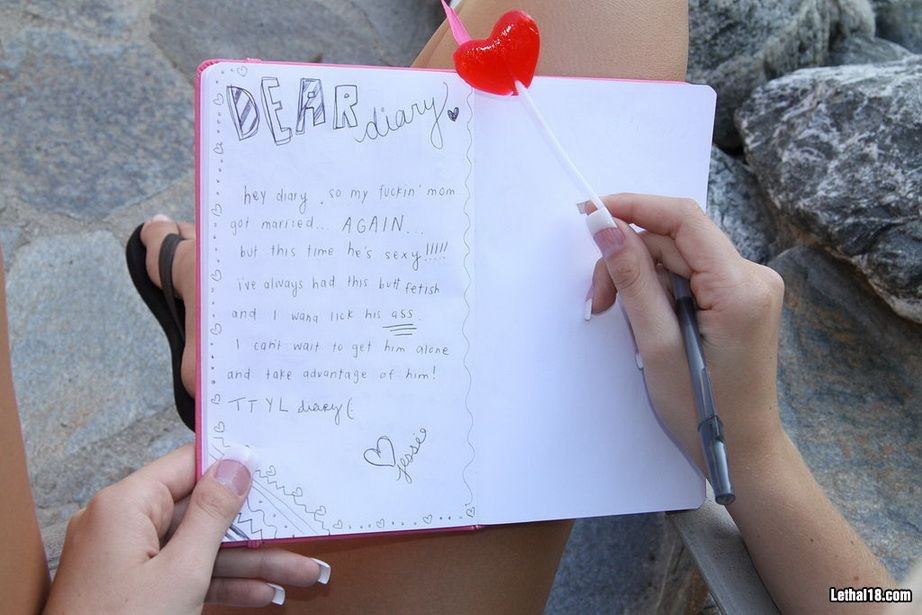 DEAR diary,
hey diary, so my fuckin' mom
got married... AGAIN...
but this time he's sexy!!!!!
i've always had this butt fetish
and I wana lick his ass.
I cant wait to get him alone
and take advantage of him!
TTYL diary(:
jessie
Lethal18.com